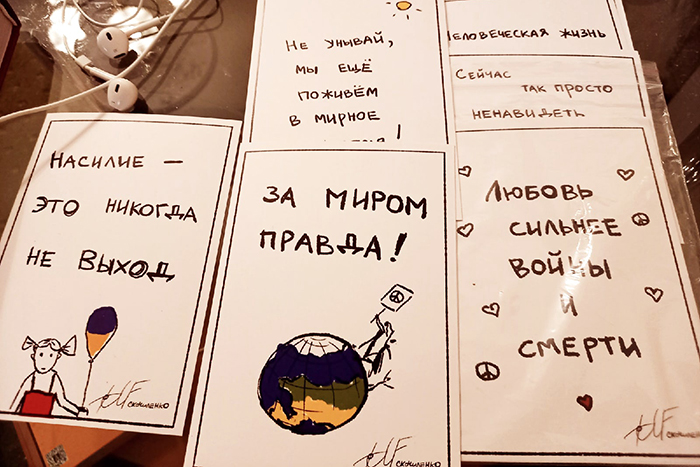 НЕ УНЫВАЙ,
МЫ ЕЩЁ
ПОЖИВЁМ
В МИРНОЕ
ЧЕЛОВЕЧЕСКАЯ ЖИЗНЬ
СЕЙЧАС
ТАК ПРОСТО
НЕНАВИДЕТЬ
НАСИЛИЕ —
ЭТО НИКОГДА
НЕ ВЫХОД
СКОЧИЛЕНКО
ЗА МИРОМ
ПРАВДА!
СКОЧИЛЕНКО
ЛЮБОВЬ
СИЛЬНЕЕ
ВОЙНЫ
И
СМЕРТИ